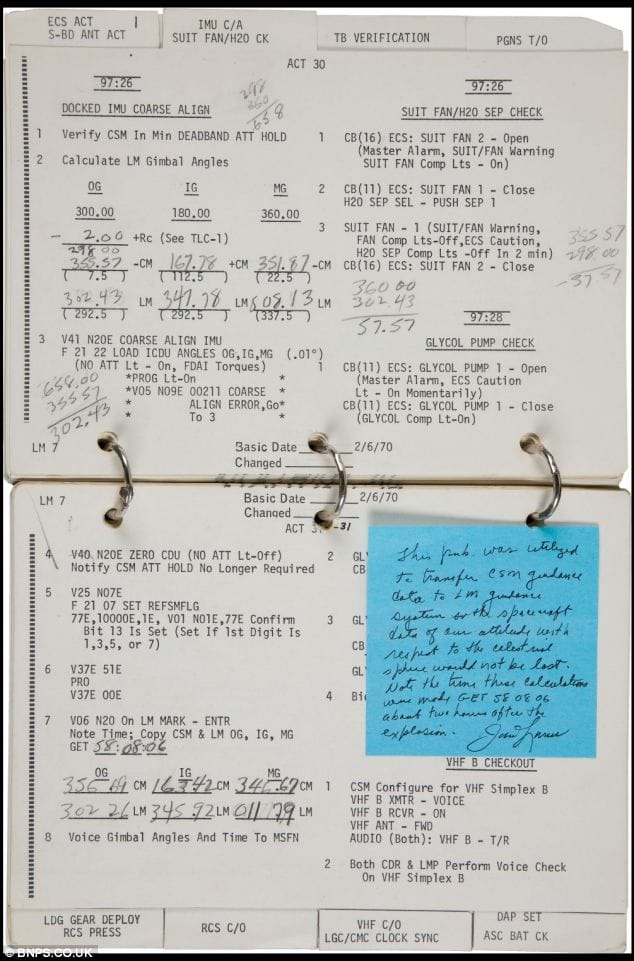 ECS ACT
S-BD ANT ACT
IMU C/A
SUIT FAN/H2O CK
TB VERIFICATION
PGNS T/O
ACT 30
97:26
DOCKED IMU COARSE ALIGN
298
360
658
1 Verify CSM In Min DEADBAND ATT HOLD
2 Calculate LM Gimbal Angles
OG IG MG
300.00 180.00 360.00
- 2.00 +Rc (See TLC-1)
298.00
355.57 -CM 167.78 +CM 351.87 -CM
( 7.5 ) (112.5 ) ( 22.5 )
302.43 LM 347.78 LM 608.13 LM
(292.5 ) (292.5 ) (337.5 )
3 V41 N20E COARSE ALIGN IMU
F 21 22 LOAD ICDU ANGLES OG,IG,MG (.01°)
(NO ATT Lt - On, FDAI Torques)
*PROG Lt-On *
*V05 N09E 00211 COARSE *
* ALIGN ERROR,Go*
* To 3 *
658.00
355.57
302.43
97:26
SUIT FAN/H2O SEP CHECK
1 CB(16) ECS: SUIT FAN 2 - Open
(Master Alarm, SUIT/FAN Warning
SUIT FAN Comp Lts - On)
2 CB(11) ECS: SUIT FAN 1 - Close
H2O SEP SEL - PUSH SEP 1
3 SUIT FAN - 1 (SUIT/FAN Warning,
FAN Comp Lts-Off,ECS Caution,
H2O SEP Comp Lts -Off In 2 min)
CB(16) ECS: SUIT FAN 2 - Close
355.57
298.00
-57.57
360 00
302.43
57.57
97:28
GLYCOL PUMP CHECK
1 CB(11) ECS: GLYCOL PUMP 1 - Open
(Master Alarm, ECS Caution
Lt - On Momentarily)
CB(11) ECS: GLYCOL PUMP 1 - Close
(GLYCOL Comp Lt-On)
LM 7
Basic Date 2/6/70
Changed
LM 7
Basic Date 2/6/70
Changed
ACT 31
-31
4 V40 N20E ZERO CDU (NO ATT Lt-Off)
Notify CSM ATT HOLD No Longer Required
5 V25 N07E
F 21 07 SET REFSMFLG
77E,10000E,1E, V01 N01E,77E Confirm
Bit 13 Is Set (Set If 1st Digit Is
1,3,5, or 7)
6 V37E 51E
PRO
V37E 00E
7 V06 N20 On LM MARK - ENTR
Note Time; Copy CSM & LM OG, IG, MG
GET 58:08:06
OG IG MG
356 69 CM 163 42 CM 346.67 CM
302 26 LM 345.92 LM 011 79 LM
8 Voice Gimbal Angles And Time To MSFN
2 GL
CB
3 GL
CB
GL
4 Bi
This pub. was utilized
to transfer CSM guidance
data to LM guidance
system so the spacecraft
data of our attitude with
respect to the celestial
sphere would not be lost.
Note the time these calculations
were made GET 58 08 06
about two hours after the
explosion. Jim Lovell
VHF B CHECKOUT
1 CSM Configure for VHF Simplex B
VHF B XMTR - VOICE
VHF B RCVR - ON
VHF ANT - FWD
AUDIO (Both): VHF B - T/R
2 Both CDR & LMP Perform Voice Check
On VHF Simplex B
LDG GEAR DEPLOY
RCS PRESS
RCS C/O
VHF C/O
LGC/CMC CLOCK SYNC
DAP SET
ASC BAT CK
© BNPS.CO.UK